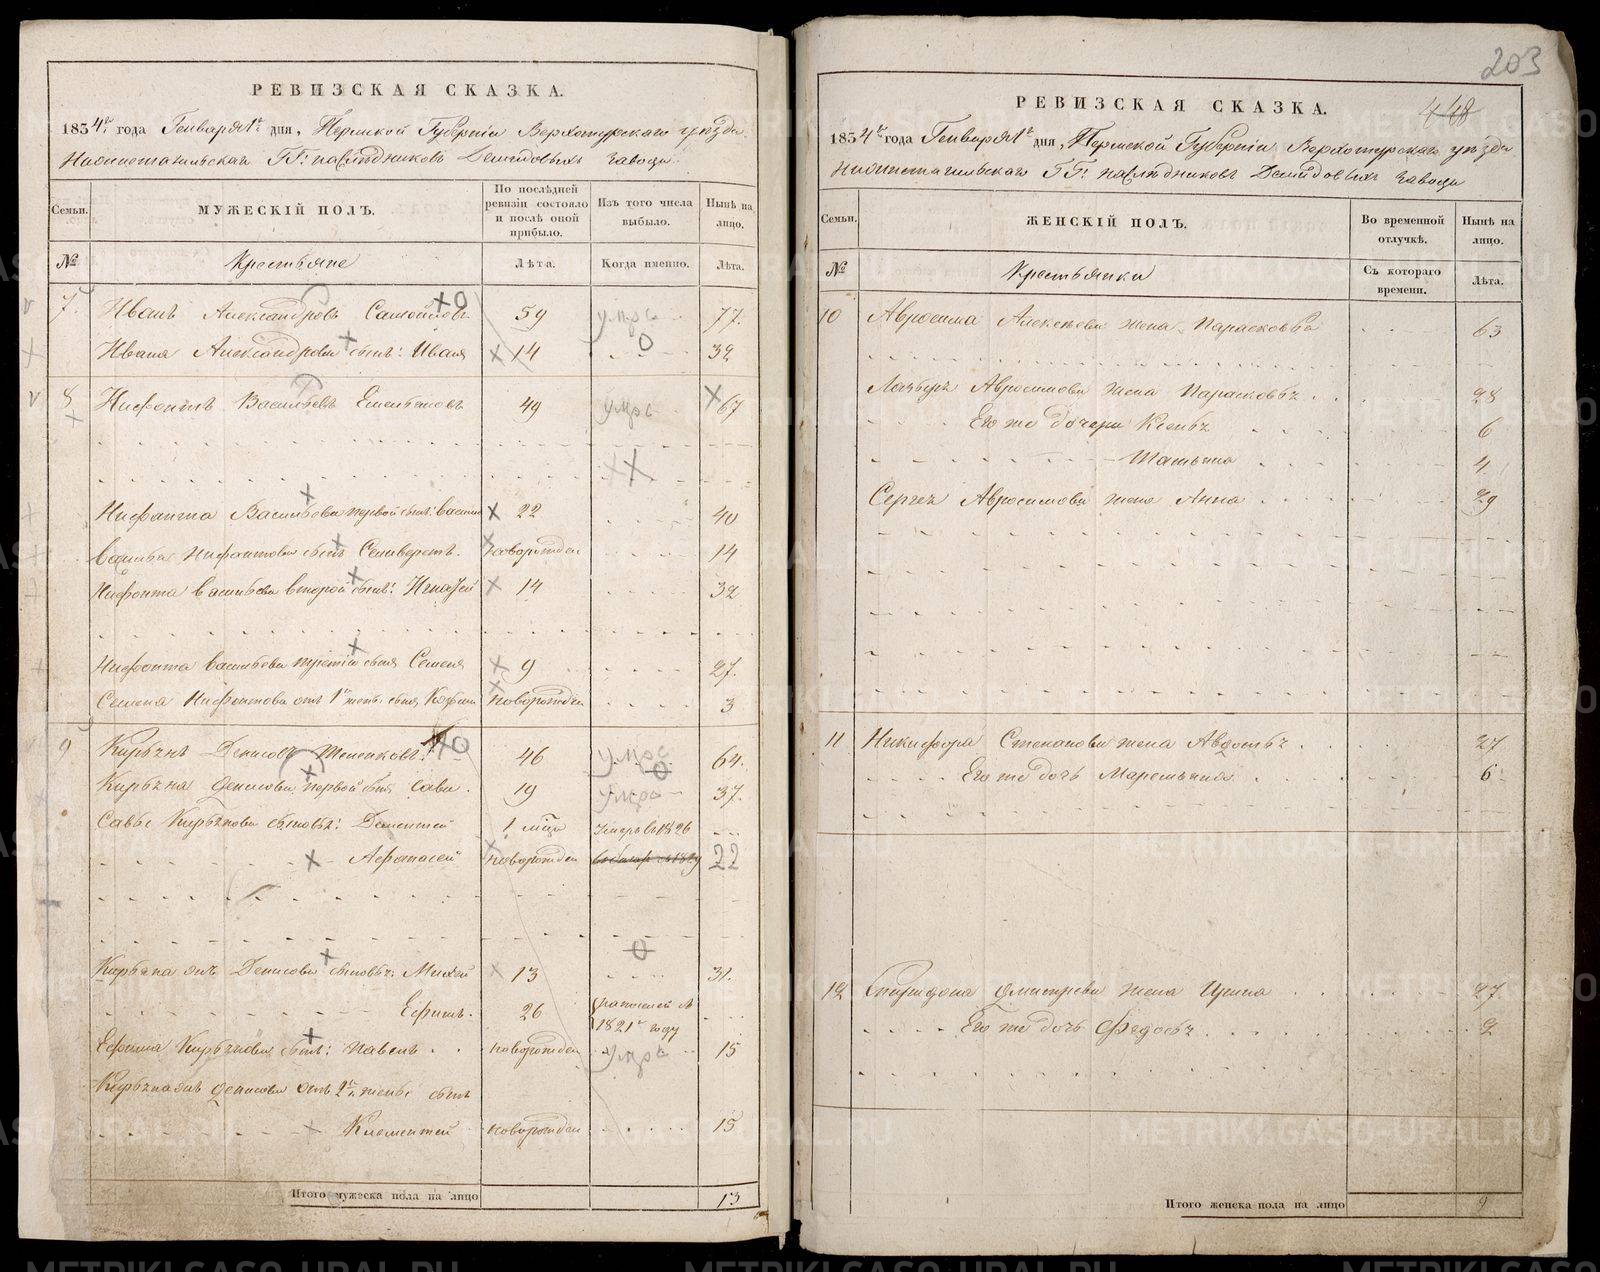 РЕВИЗСКАЯ СКАЗКА.
1834го года Генваря 1го дня, Пермской Губерніи Верхотурскаго уѣзда
Нижнетагильскаго ГГ: наслѣдниковъ Демидовыхъ завода
Семьи.
МУЖЕСКІЙ ПОЛЪ.
По послѣдней ревизіи состояло и послѣ оной прибыло.
Изъ того числа выбыло.
Нынѣ на лицо.
№
Крестьяне
Лѣта.
Когда именно.
Лѣта.
7. Иванъ Александровъ Самойловъ 59 умре 77.
Ивана Александрова сынъ: Иванъ 14 32
8 Нифонтъ Васильевъ 49 умре 67
Нифонта Васильева первой сынъ: Василей 22 40
Василья Нифонтова сынъ Селиверстъ. новорожден 14
Нифонта Васильева второй сынъ: Игнатей 14 32
Нифонта Васильева третій сынъ Семенъ 9 27.
Семена Нифонтова отъ 1й жены сынъ новорожден 3
9 Денисовъ 46 умре 64.
Денисова первой сынъ Сава. 19 умре 37.
Савы сыновья: Дементей 1 мца Умеръ въ 1826
Афонасей новорожден 22
Денисова сыновья: Михей 13 31.
Ефимъ. 26 въ 1821м году
Ефима сынъ: Павелъ новорожден умре 15
Денисова отъ 2й жены сынъ
Климентей новорожден 15
Итого мужеска пола на лицо 13
203
448
РЕВИЗСКАЯ СКАЗКА.
1834го года Генваря 1го дня, Пермской Губерніи Верхотурскаго уѣзда
Нижнетагильскаго ГГ: наслѣдниковъ Демидовыхъ завода
Семьи.
ЖЕНСКІЙ ПОЛЪ.
Во временной отлучкѣ.
Нынѣ на лицо.
№
Крестьянки
Съ котораго времени.
Лѣта.
10 Авросима Алексѣева жена Парасковья 63
Авросимова жена Парасковья 28
Его же дочери 6
Татьяна 4
Сергея Авросимова жена Анна 29
11 Никифора Степанова жена Авдотья 27
Его же дочь Маремьяна 6
12 Спиридона Дмитрева жена Ирина 27
Его же дочь Федосья 2
Итого женска пола на лицо 9
METRIKI.GASO-URAL.RU